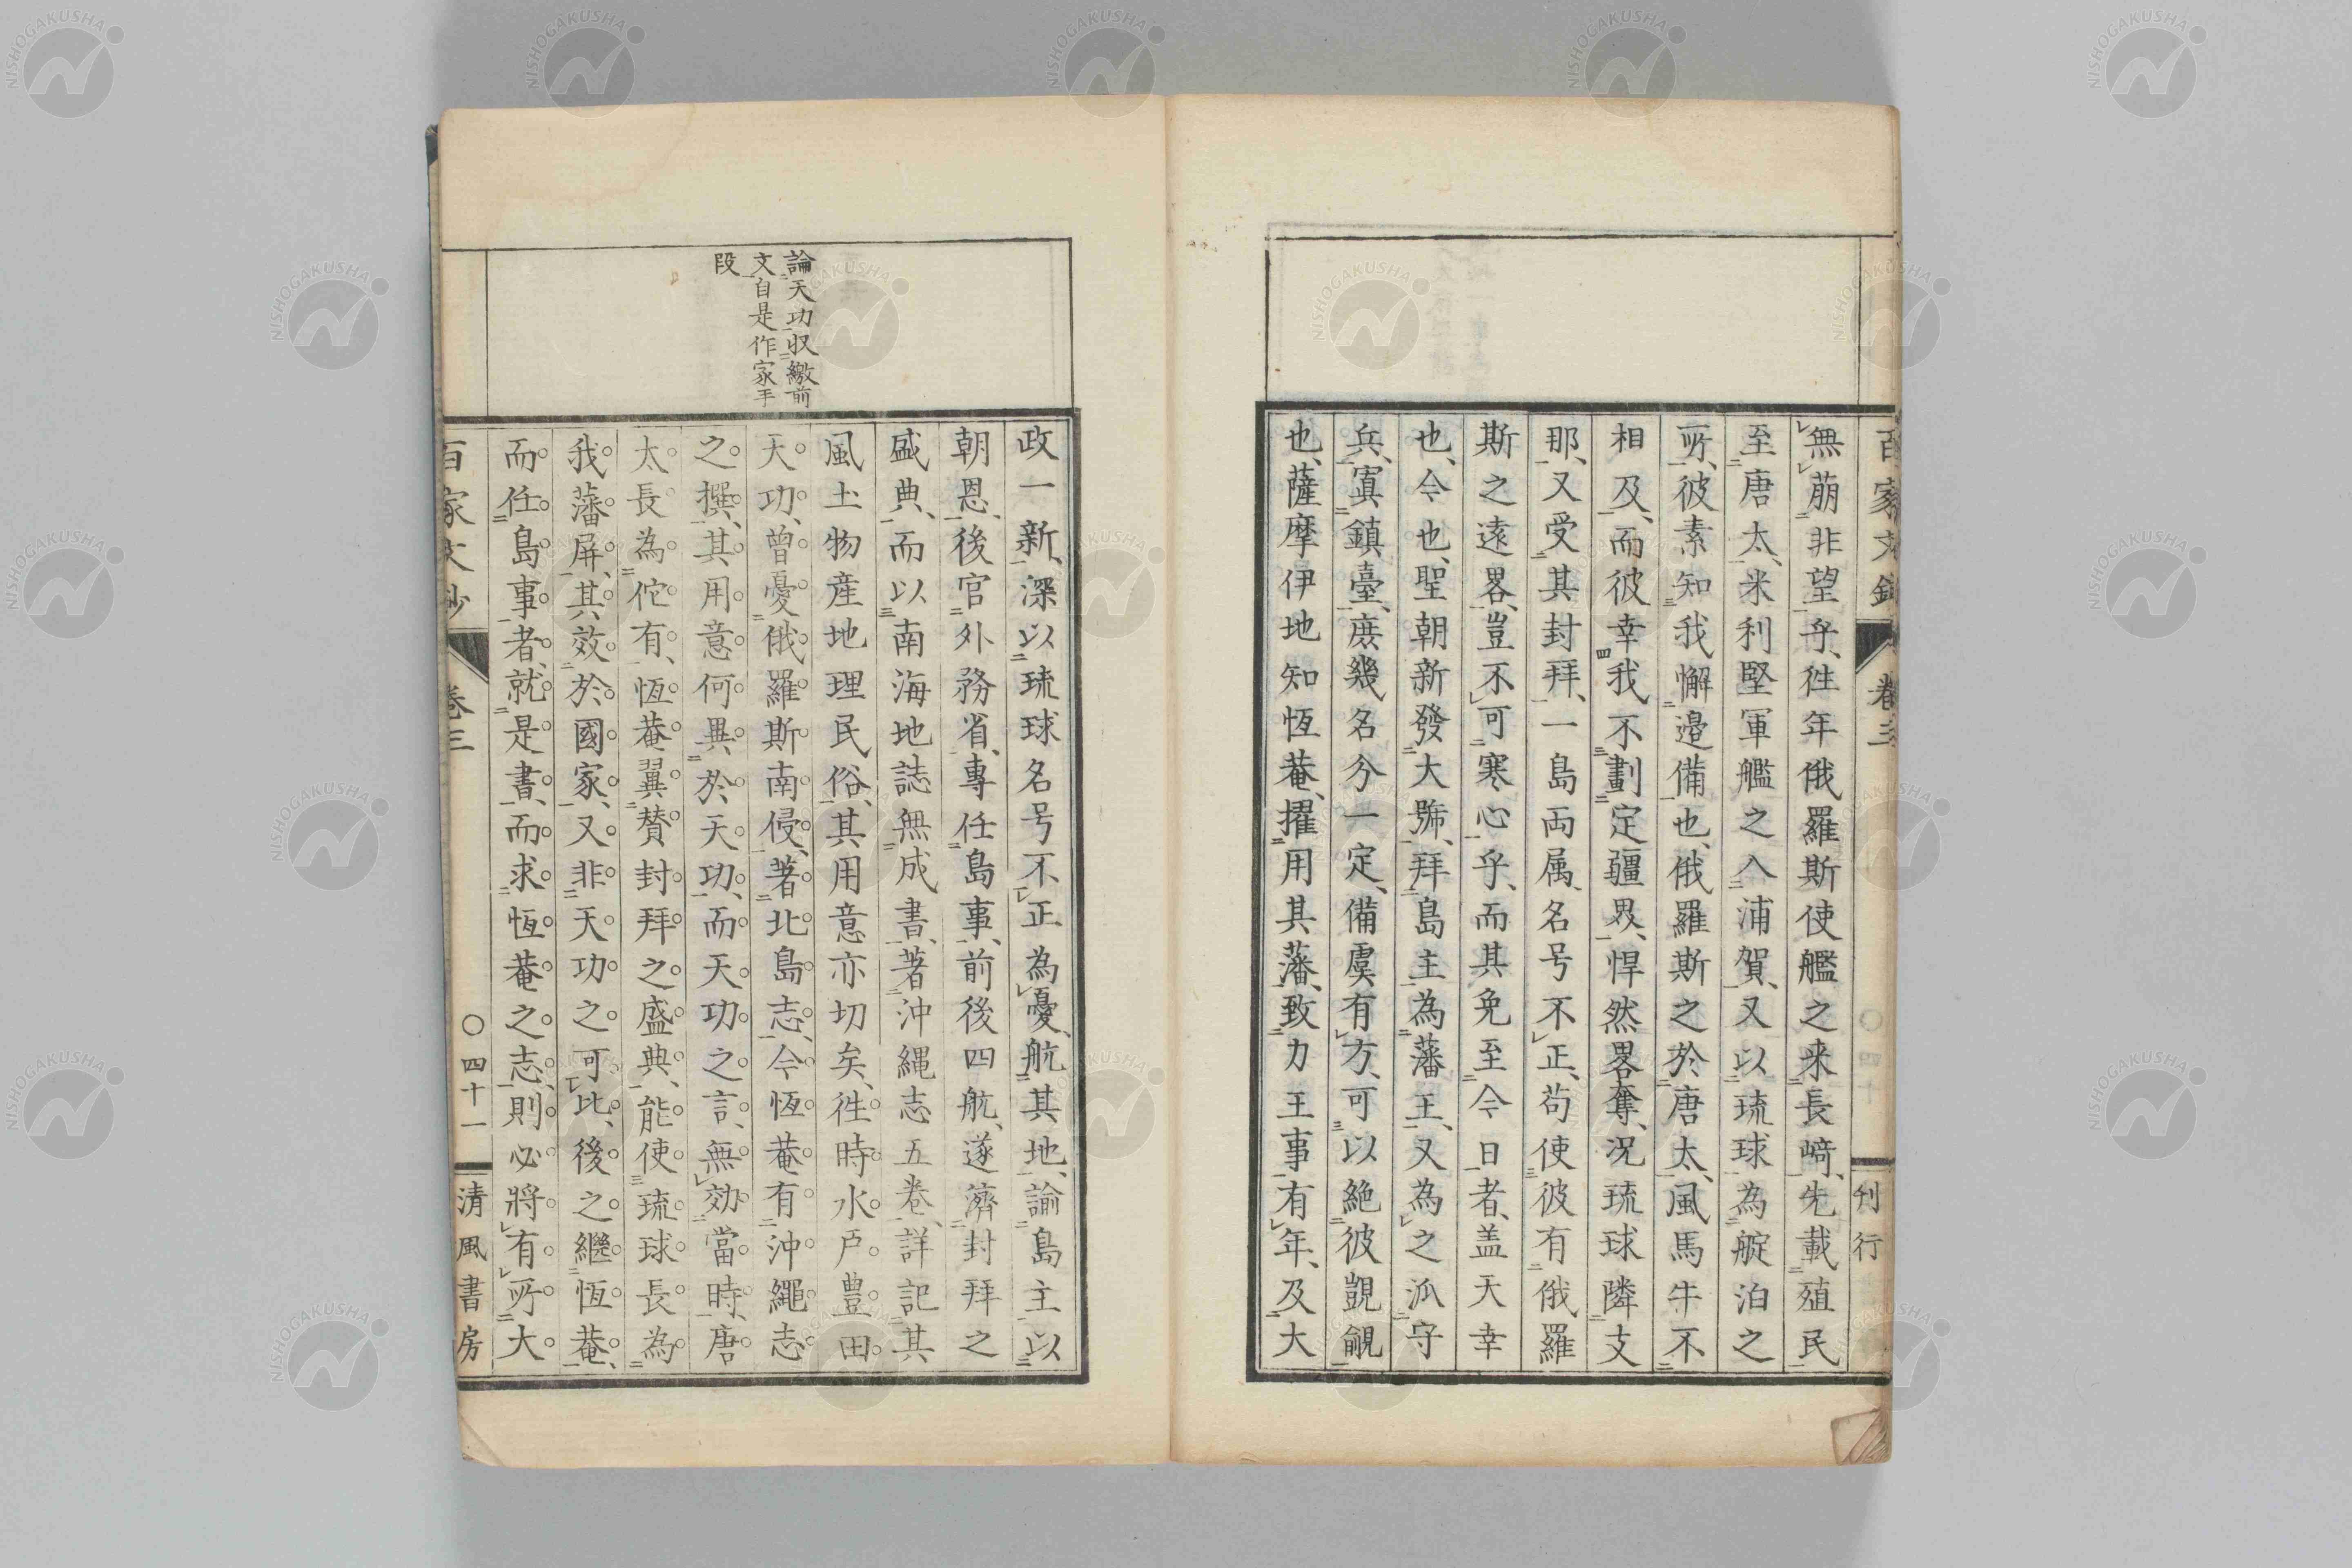 無萠非望乎、徃年俄羅斯使艦之来長﨑、先載殖民
至唐太、米利堅軍艦之入浦賀、又以琉球為碇泊之
所、彼素知我懈邉備也、俄羅斯之於唐太、風馬牛不
相及、而彼幸我不劃定疆界、悍然畧奪、况琉球隣支
那、又受其封拜、一島両属、名号不正、苟使彼有俄羅
斯之遠畧、豈不可寒心乎、而其免至今日者、盖天幸
也、今也、聖朝新發大號、拜島主為藩王、又為之派守
兵、寘鎮臺、庶幾名分一定、備虞有方、可以絶彼覬覦
也、薩摩伊地知恆菴、擢用其藩、致力王事有年、及大
百家文鈔 巻三 刊行
政一新、深以琉球名号不正為憂、航其地、諭島主以
朝恩、後官外務省、專任島事、前後四航、遂濟封拜之
盛典、而以南海地誌無成書、著沖縄志五卷、詳記其
風土物産地理民俗、其用意亦切矣、徃時水戸豊田
天功、曾憂俄羅斯南侵、著北島志、今恆菴有沖繩志
之撰、其用意何異於天功、而天功之言、無効當時、唐
太長為佗有、恆菴翼賛封拜之盛典、能使琉球長為
我藩屏、其效於國家、又非天功之可比、後之繼恆菴、
而任島事者、就是書、而求恆菴之志、則必將有所大
論天功収繳前
文自是作家手
段
百家文鈔 巻三 〇四十一 清風書房
NISHOGAKUSHA